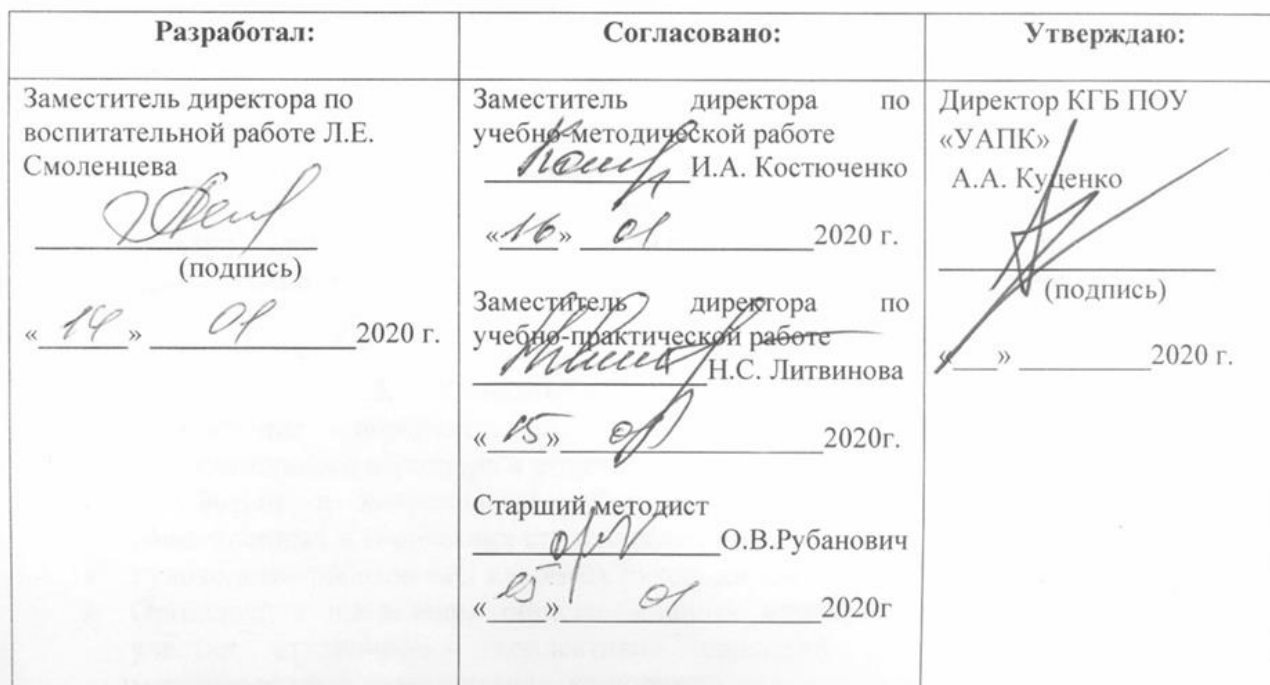 Разработал:
Заместитель директора по
воспитательной работе Л.Е.
Смоленцева
(подпись)
« 14 » 01 2020 г.
Согласовано:
Заместитель директора по
учебно-методической работе
И.А. Костюченко
«16» 01 2020 г.
Заместитель директора по
учебно-практической работе
Н.С. Литвинова
« 15 » 01 2020г.
Старший методист
О.В.Рубанович
« 15 » 01 2020г
Утверждаю:
Директор КГБ ПОУ
«УАПК»
А.А. Куценко
(подпись)
«___» __________ 2020 г.